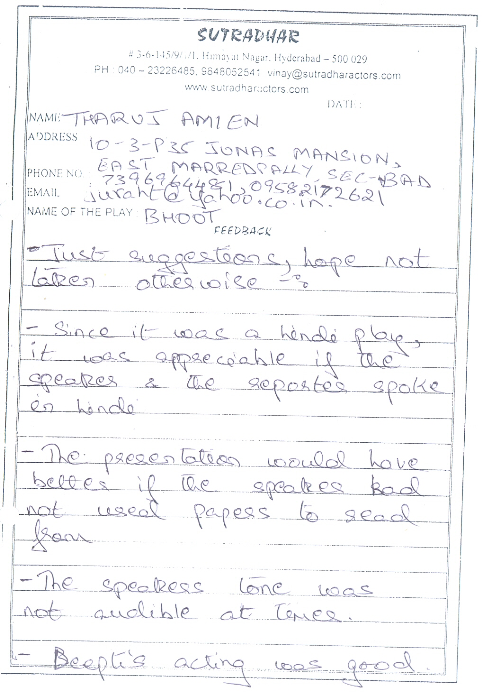 SUTRADHAR
# 3-6-145/9/./1, Himayat Nagar, Hyderabad – 500 029
PH : 040 – 23226485, 9848052541 vinay@sutradharactors.com
www.sutradharactors.com
DATE :
NAME THARUJ AMIEN
ADDRESS 10-3-P35 JONAS MANSION,
EAST MARREDPALLY, SEC-BAD
PHONE NO. 09582172621
EMAIL juraht@yahoo.co.in.
NAME OF THE PLAY BHOOT
FEEDBACK
- Just suggestions, hope not
taken otherwise -:
- Since it was a hindi play,
it was appreciable if the
speaker & the reporter spoke
in hindi
- The presentation would have
better if the speaker had
not used papers to read
from
- The speakers tone was
not audible at times.
- Beepti's acting was good.